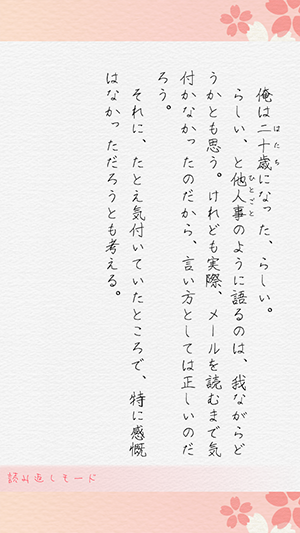 俺は二十歳になった、らしい。
らしい、と他人事のように語るのは、我ながらど
うかとも思う。けれども実際、メールを読むまで気
付かなかったのだから、言い方としては正しいのだ
ろう。
それに、たとえ気付いていたところで、特に感慨
はなかっただろうとも考える。
はたち
ひとごと
読み直しモード